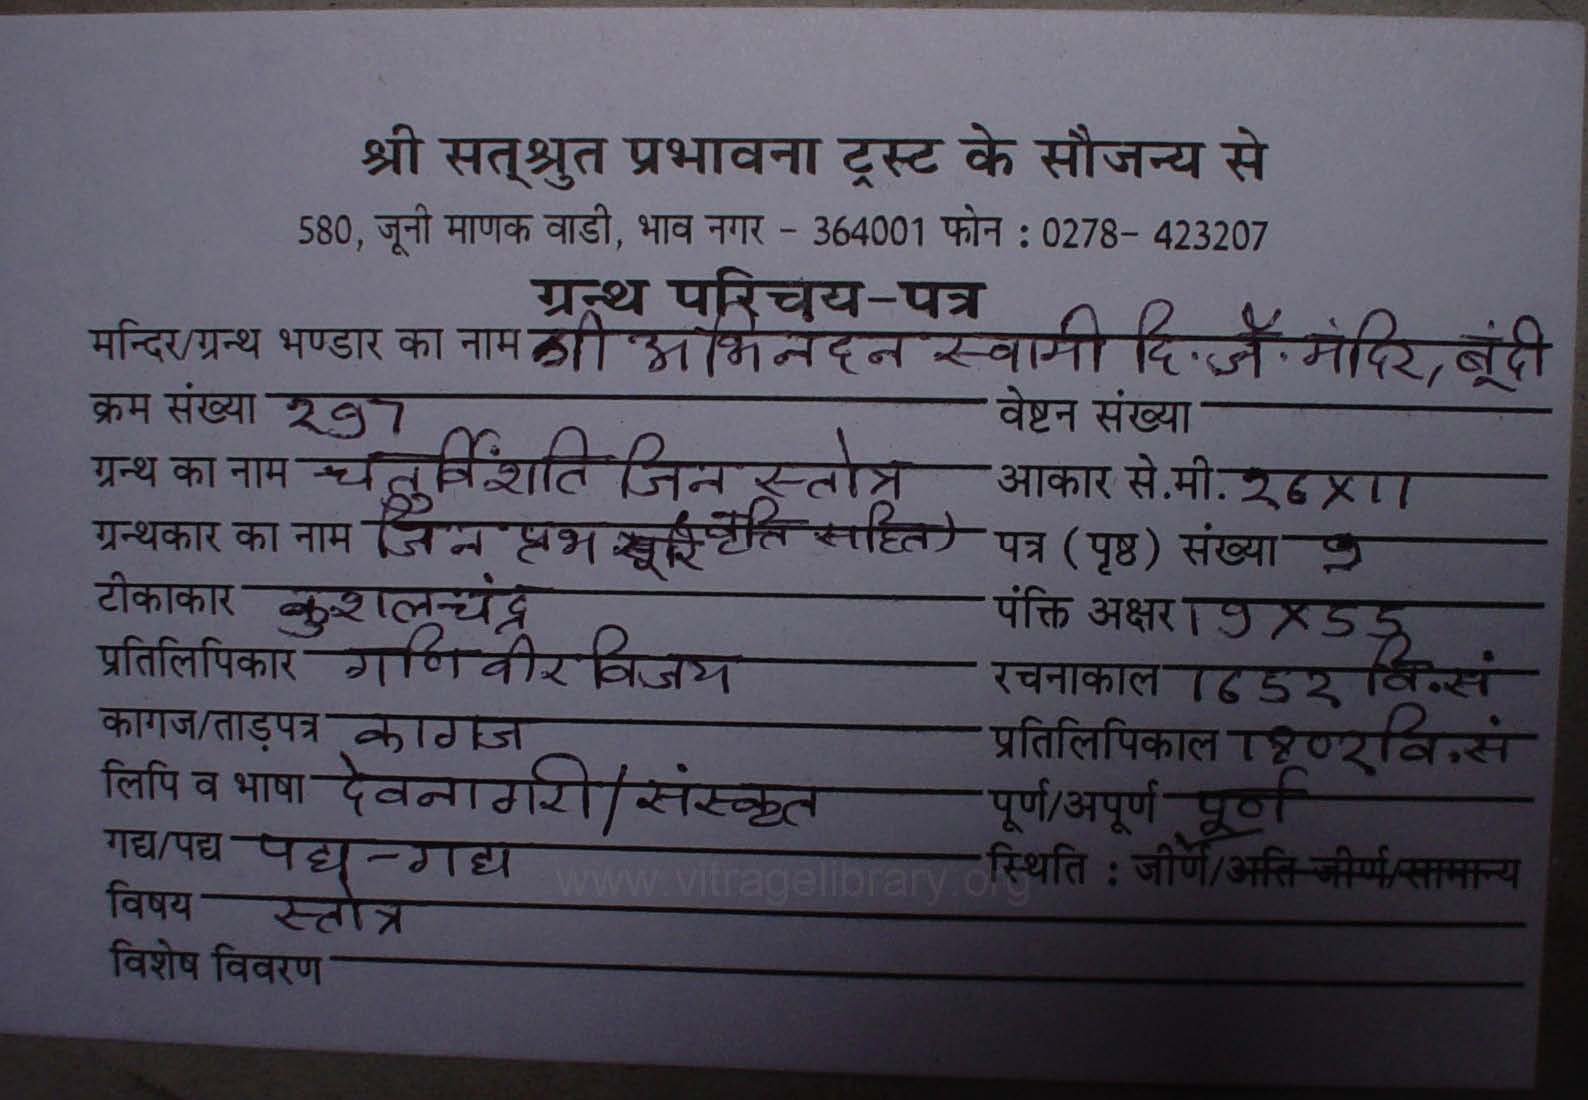 श्री सत्श्रुत प्रभावना ट्रस्ट के सौजन्य से
580, जूनी माणक वाडी, भाव नगर - 364001 फोन : 0278- 423207
ग्रन्थ परिचय-पत्र
मन्दिर/ग्रन्थ भण्डार का नाम श्री अभिनदन स्वामी दि. जैं. मंदिर, बूंदी
क्रम संख्या २९७ वेष्टन संख्या
ग्रन्थ का नाम चतुर्विंशति जिन स्तोत्र आकार से.मी. २६X11
ग्रन्थकार का नाम जिन प्रभ सूरि सहित) पत्र (पृष्ठ) संख्या
टीकाकार कुशलचंद्र पंक्ति अक्षर
प्रतिलिपिकार गणि वीर विजय रचनाकाल 1६5२ वि.सं
कागज/ताड़पत्र कागज प्रतिलिपिकाल वि.सं
लिपि व भाषा देवनागरी/संस्कृत पूर्ण/अपूर्ण पूर्ण
गद्य/पद्य पद्य-गद्य स्थिति : जीर्ण/अति जीर्ण/सामान्य
www.vitragelibrary.org
विषय स्तोत्र
विशेष विवरण